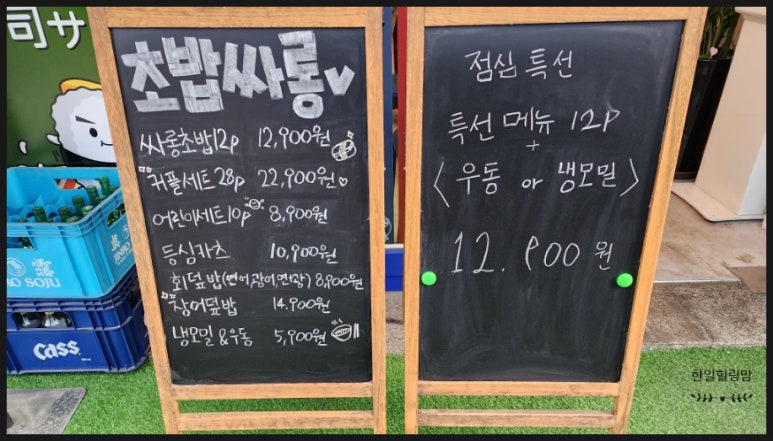 司サ
초밥싸롱
싸롱초밥12p 12,900원
커플세트 28p 22,900원
어린이세트10p 8,900원
등심카츠 10,900원
회덮밥(연어,광어,연광) 8,900원
장어덮밥 14,900원
냉모밀 & 우동 5,900원
점심 특선
특선 메뉴 12p
+
<우동 or 냉모밀>
12.900원
SOJU
Cass
한일힐링맘